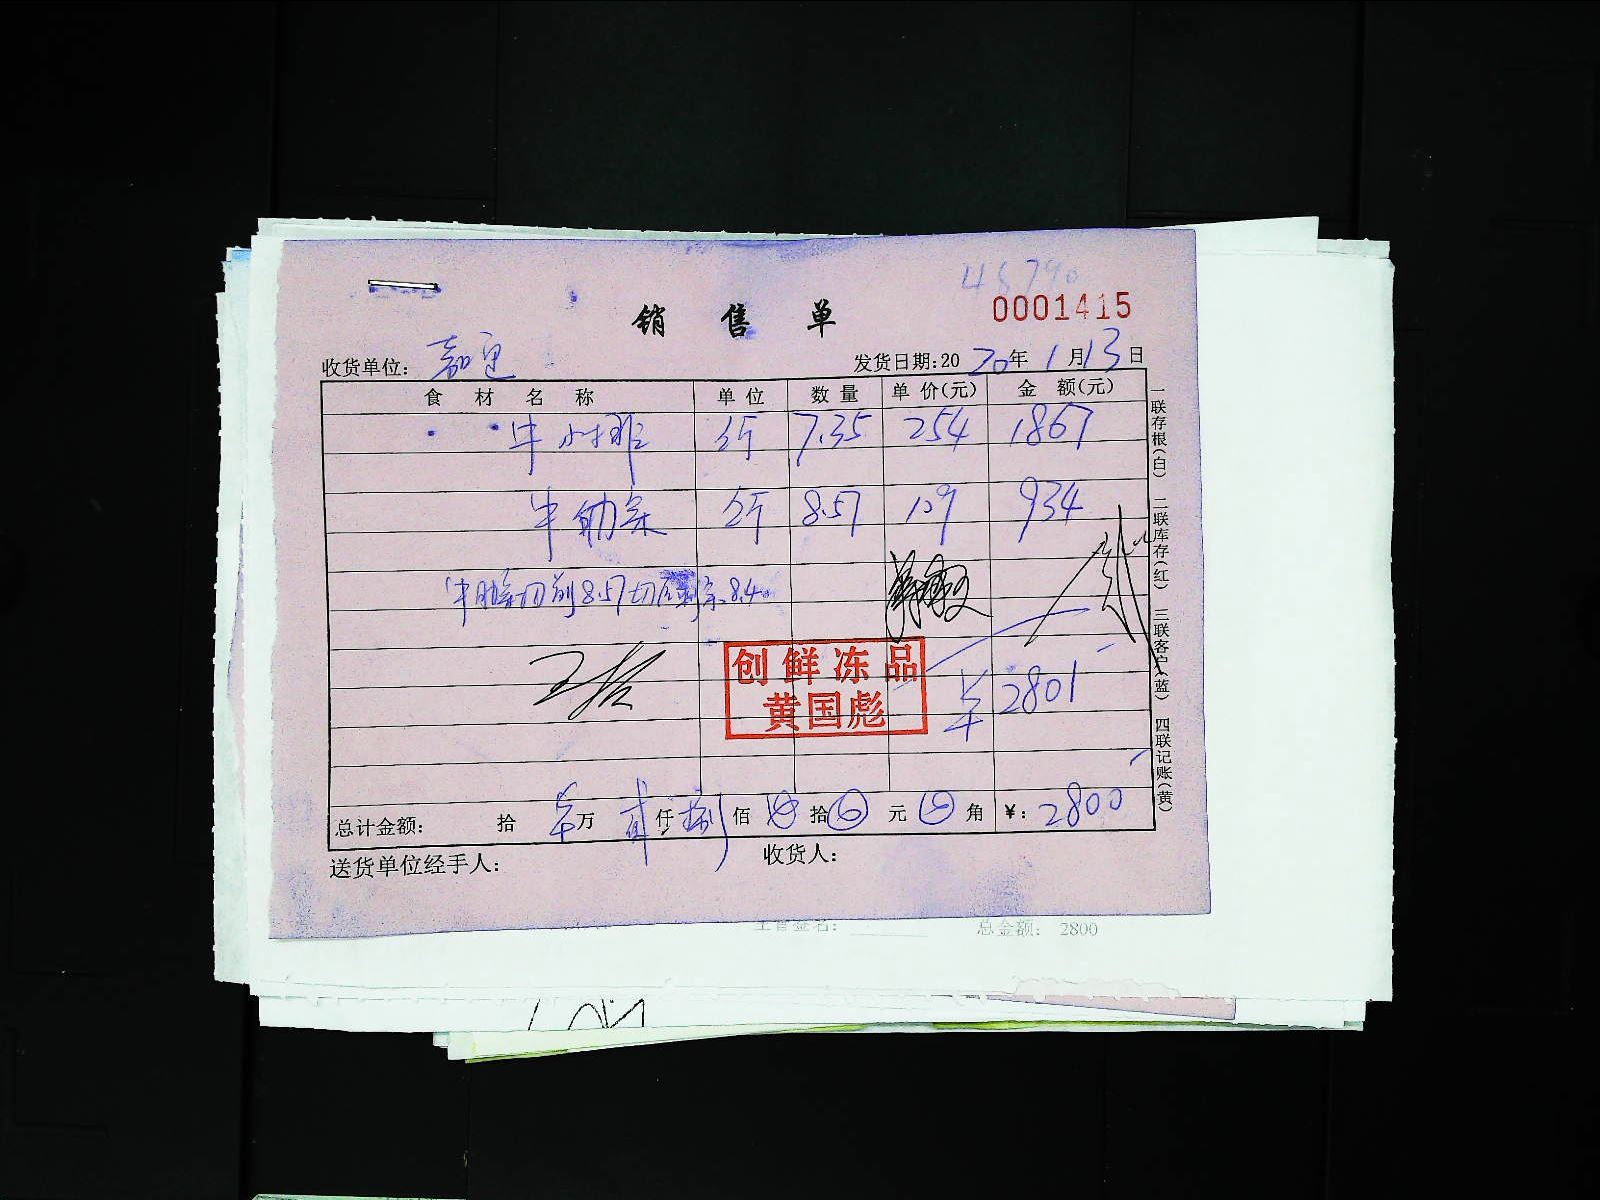 45790
销售单
0001415
收货单位： 发货日期：20 20年 1月13日
食材名称 单位 数量 单价(元) 金额(元)
牛小排 斤 7.35 254 1867
牛肋条 斤 8.57 109 934
切前8.57切后剩 8.4
创鲜冻品
黄国彪
2801
总计金额： 拾 万 贰仟捌佰 拾 元 角 ¥：2800
送货单位经手人： 收货人：
一联存根(白) 二联库存(红) 三联客户(蓝) 四联记账(黄)
总金额： 2800